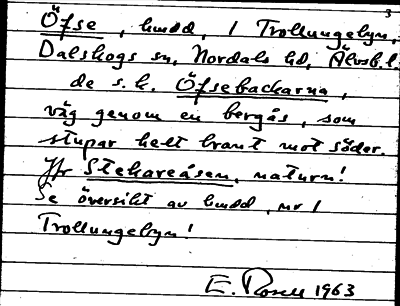 3
Öfse, hmdd, i Trollungebyn,
Dalskogs sn, Nordals hd, Älvsb. l.
de s. k. Öfsebackarna,
väg genom en bergås, som
stupar helt brant mot söder.
Jfr Stekareåsen, naturn!
Se översikt av hmdd, nr 1
Trollungebyn!
E. Rosell 1963